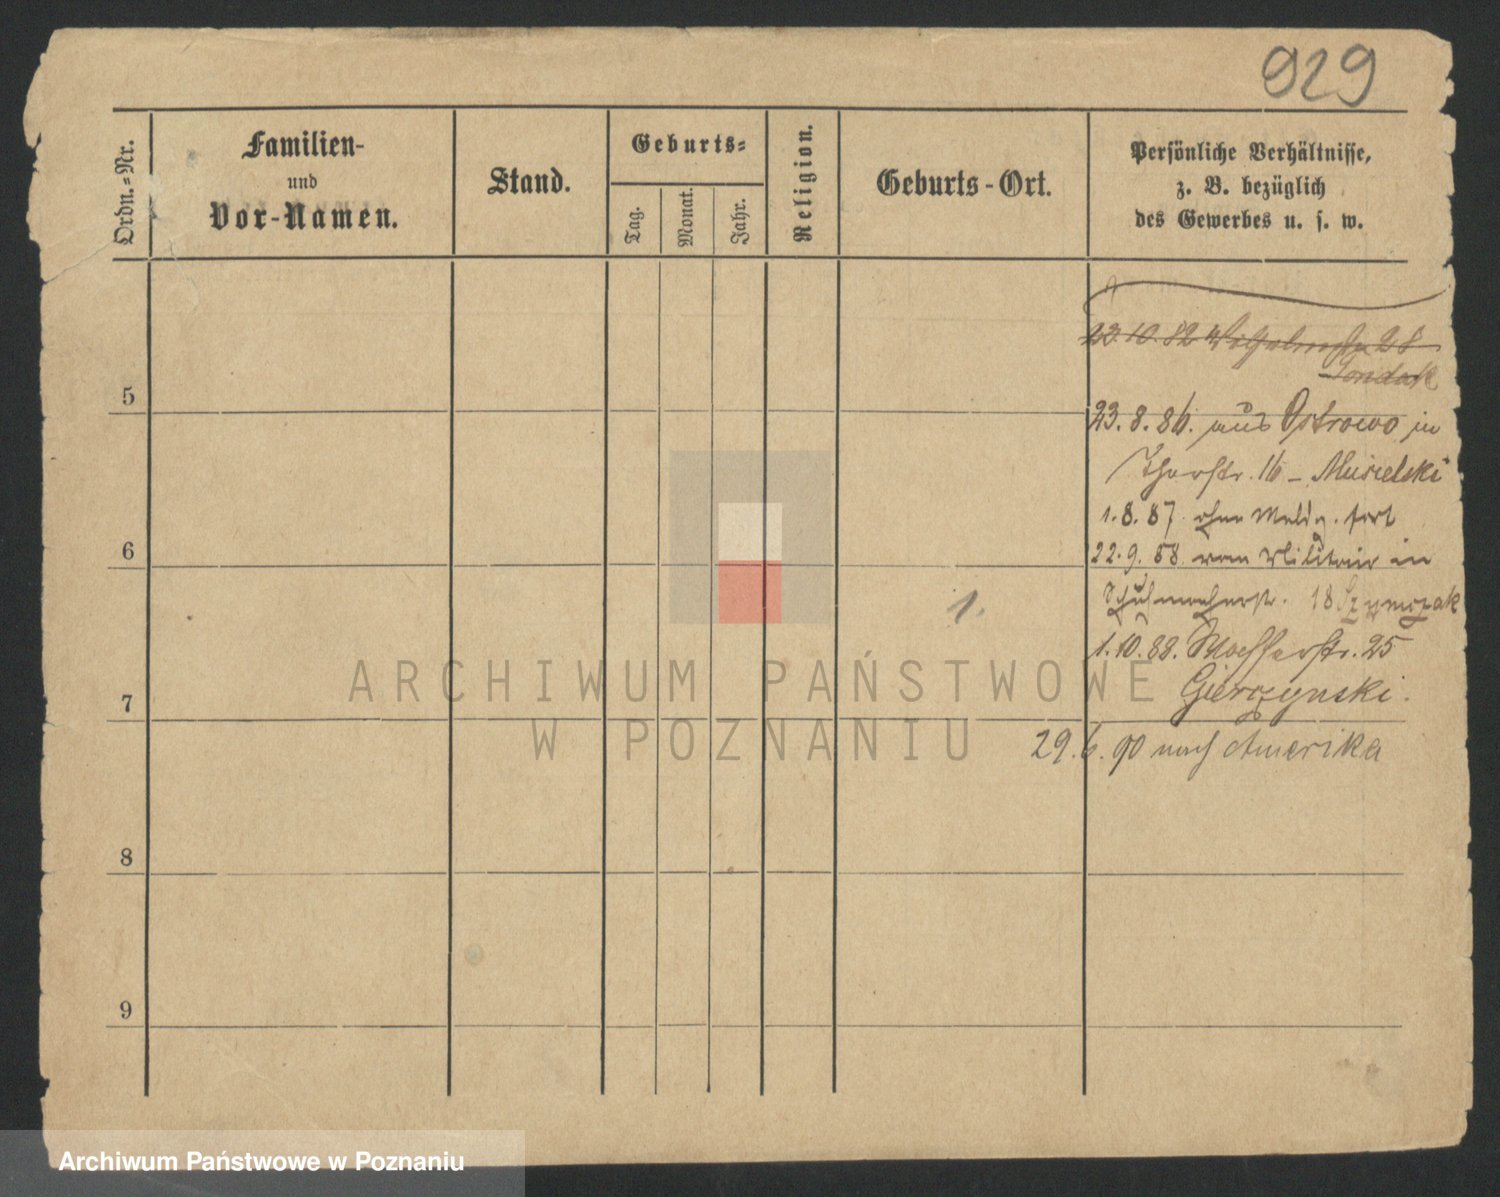 929
Ordn.-Nr.
Familien-
und
Vor-Namen.
Stand.
Geburts-
Tag.
Monat.
Jahr.
Religion.
Geburts-Ort.
Persönliche Verhältnisse,
z. B. bezüglich
des Gewerbes u. s. w.
23.10.82 28
5
23.8.86. aus Ostrowo in
16 – Musielski
1.8.87 ohne Meldg. fort
6
22.9.88 vom Militair in
Schuhmacherstr. 18 Szymczak
1.
1.10.88. 25
Gierczynski.
7
29.6.90 nach Amerika
8
9
ARCHIWUM PAŃSTWOWE
W POZNANIU
Archiwum Państwowe w Poznaniu